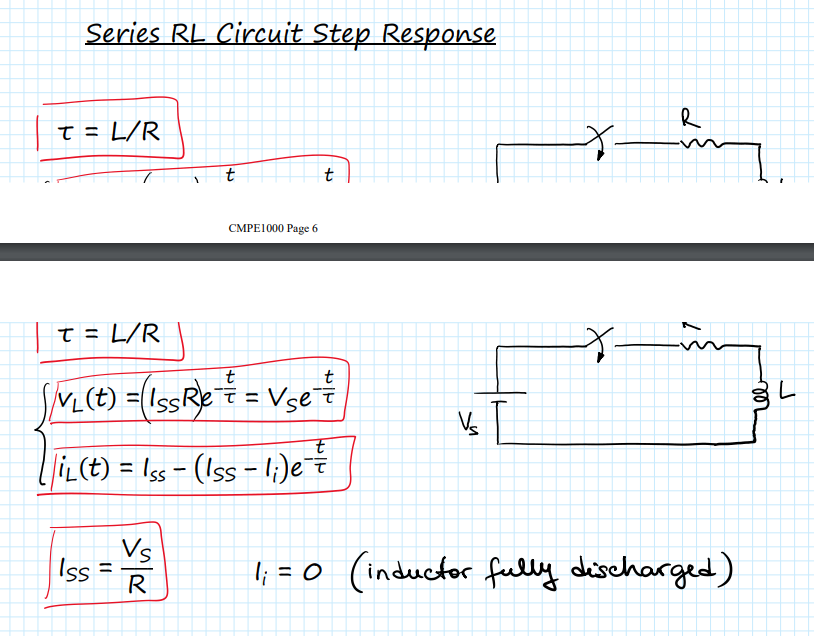 Series RL Circuit Step Response
τ = L/R
R
t t
CMPE1000 Page 6
τ = L/R
v_L(t) = (I_SS R)e^(-t/τ) = V_S e^(-t/τ)
L
V_S
i_L(t) = I_SS - (I_SS - I_i)e^(-t/τ)
I_SS = V_S/R
I_i = 0 (inductor fully discharged)